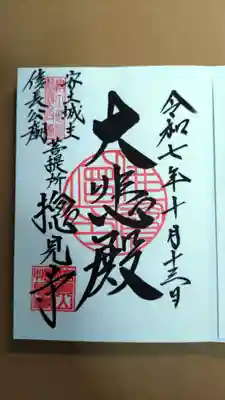 令和七年十月十三日
大悲殿
安土城主
信長公廟
菩提所
摠見寺